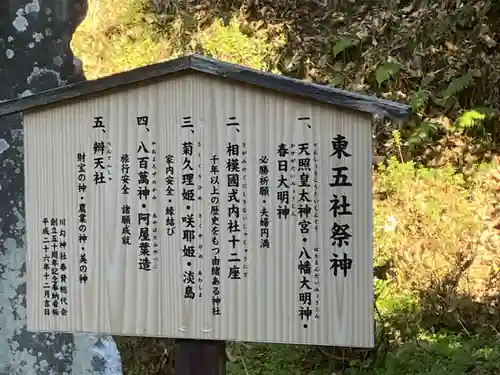 東五社祭神
一、天照皇太神宮・八幡大明神・
春日大明神
必勝祈願・夫婦円満
二、相模國式内社十二座
千年以上の歴史をもつ由緒ある神社
三、菊久理姫・咲耶姫・淡島
家内安全・縁結び
四、八百萬神・阿屋葉造
旅行安全 諸願成就
五、辨天社
財宝の神・農業の神・美の神
川勾神社奉賛総代会
創立五十周年記念奉納看板
平成二十六年十二月吉日